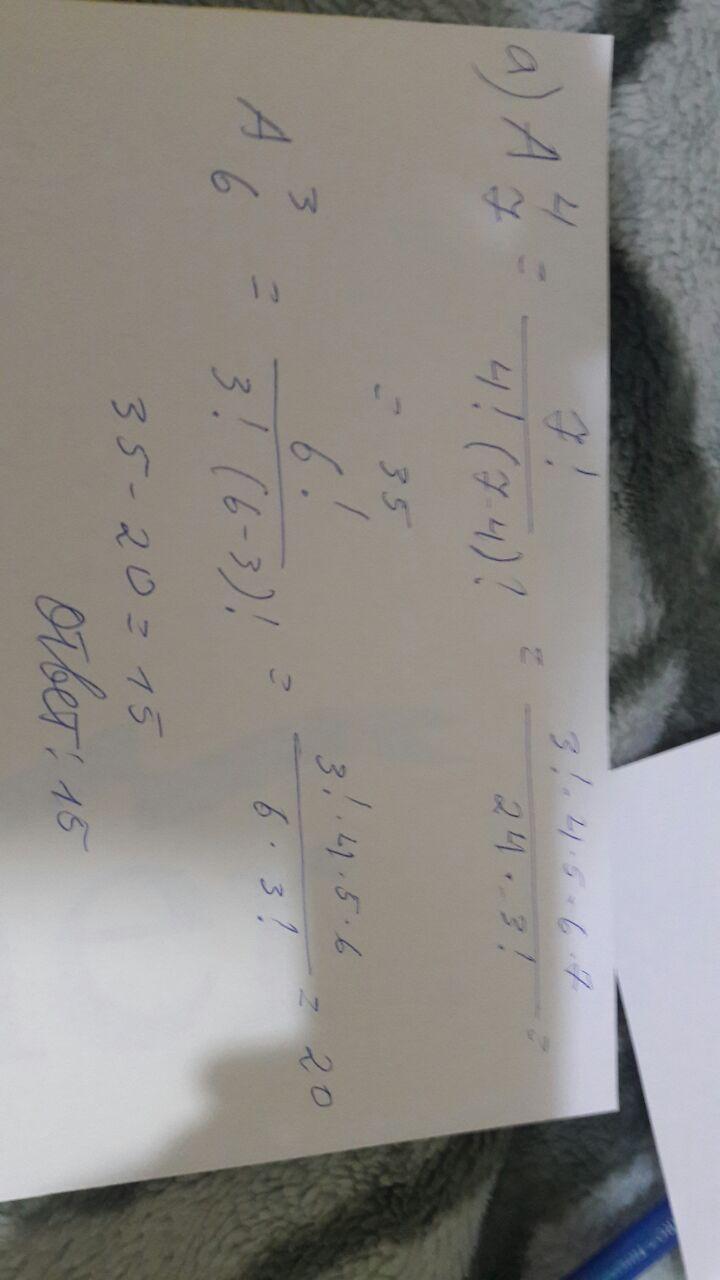 а) A⁴₇ = 7! / 4! (7-4)! = 3! · 4 · 5 · 6 · 7 / 24 · 3! =
= 35
A³₆ = 6! / 3! (6-3)! = 3! · 4 · 5 · 6 / 6 · 3! = 20
35 - 20 = 15
Ответ: 15